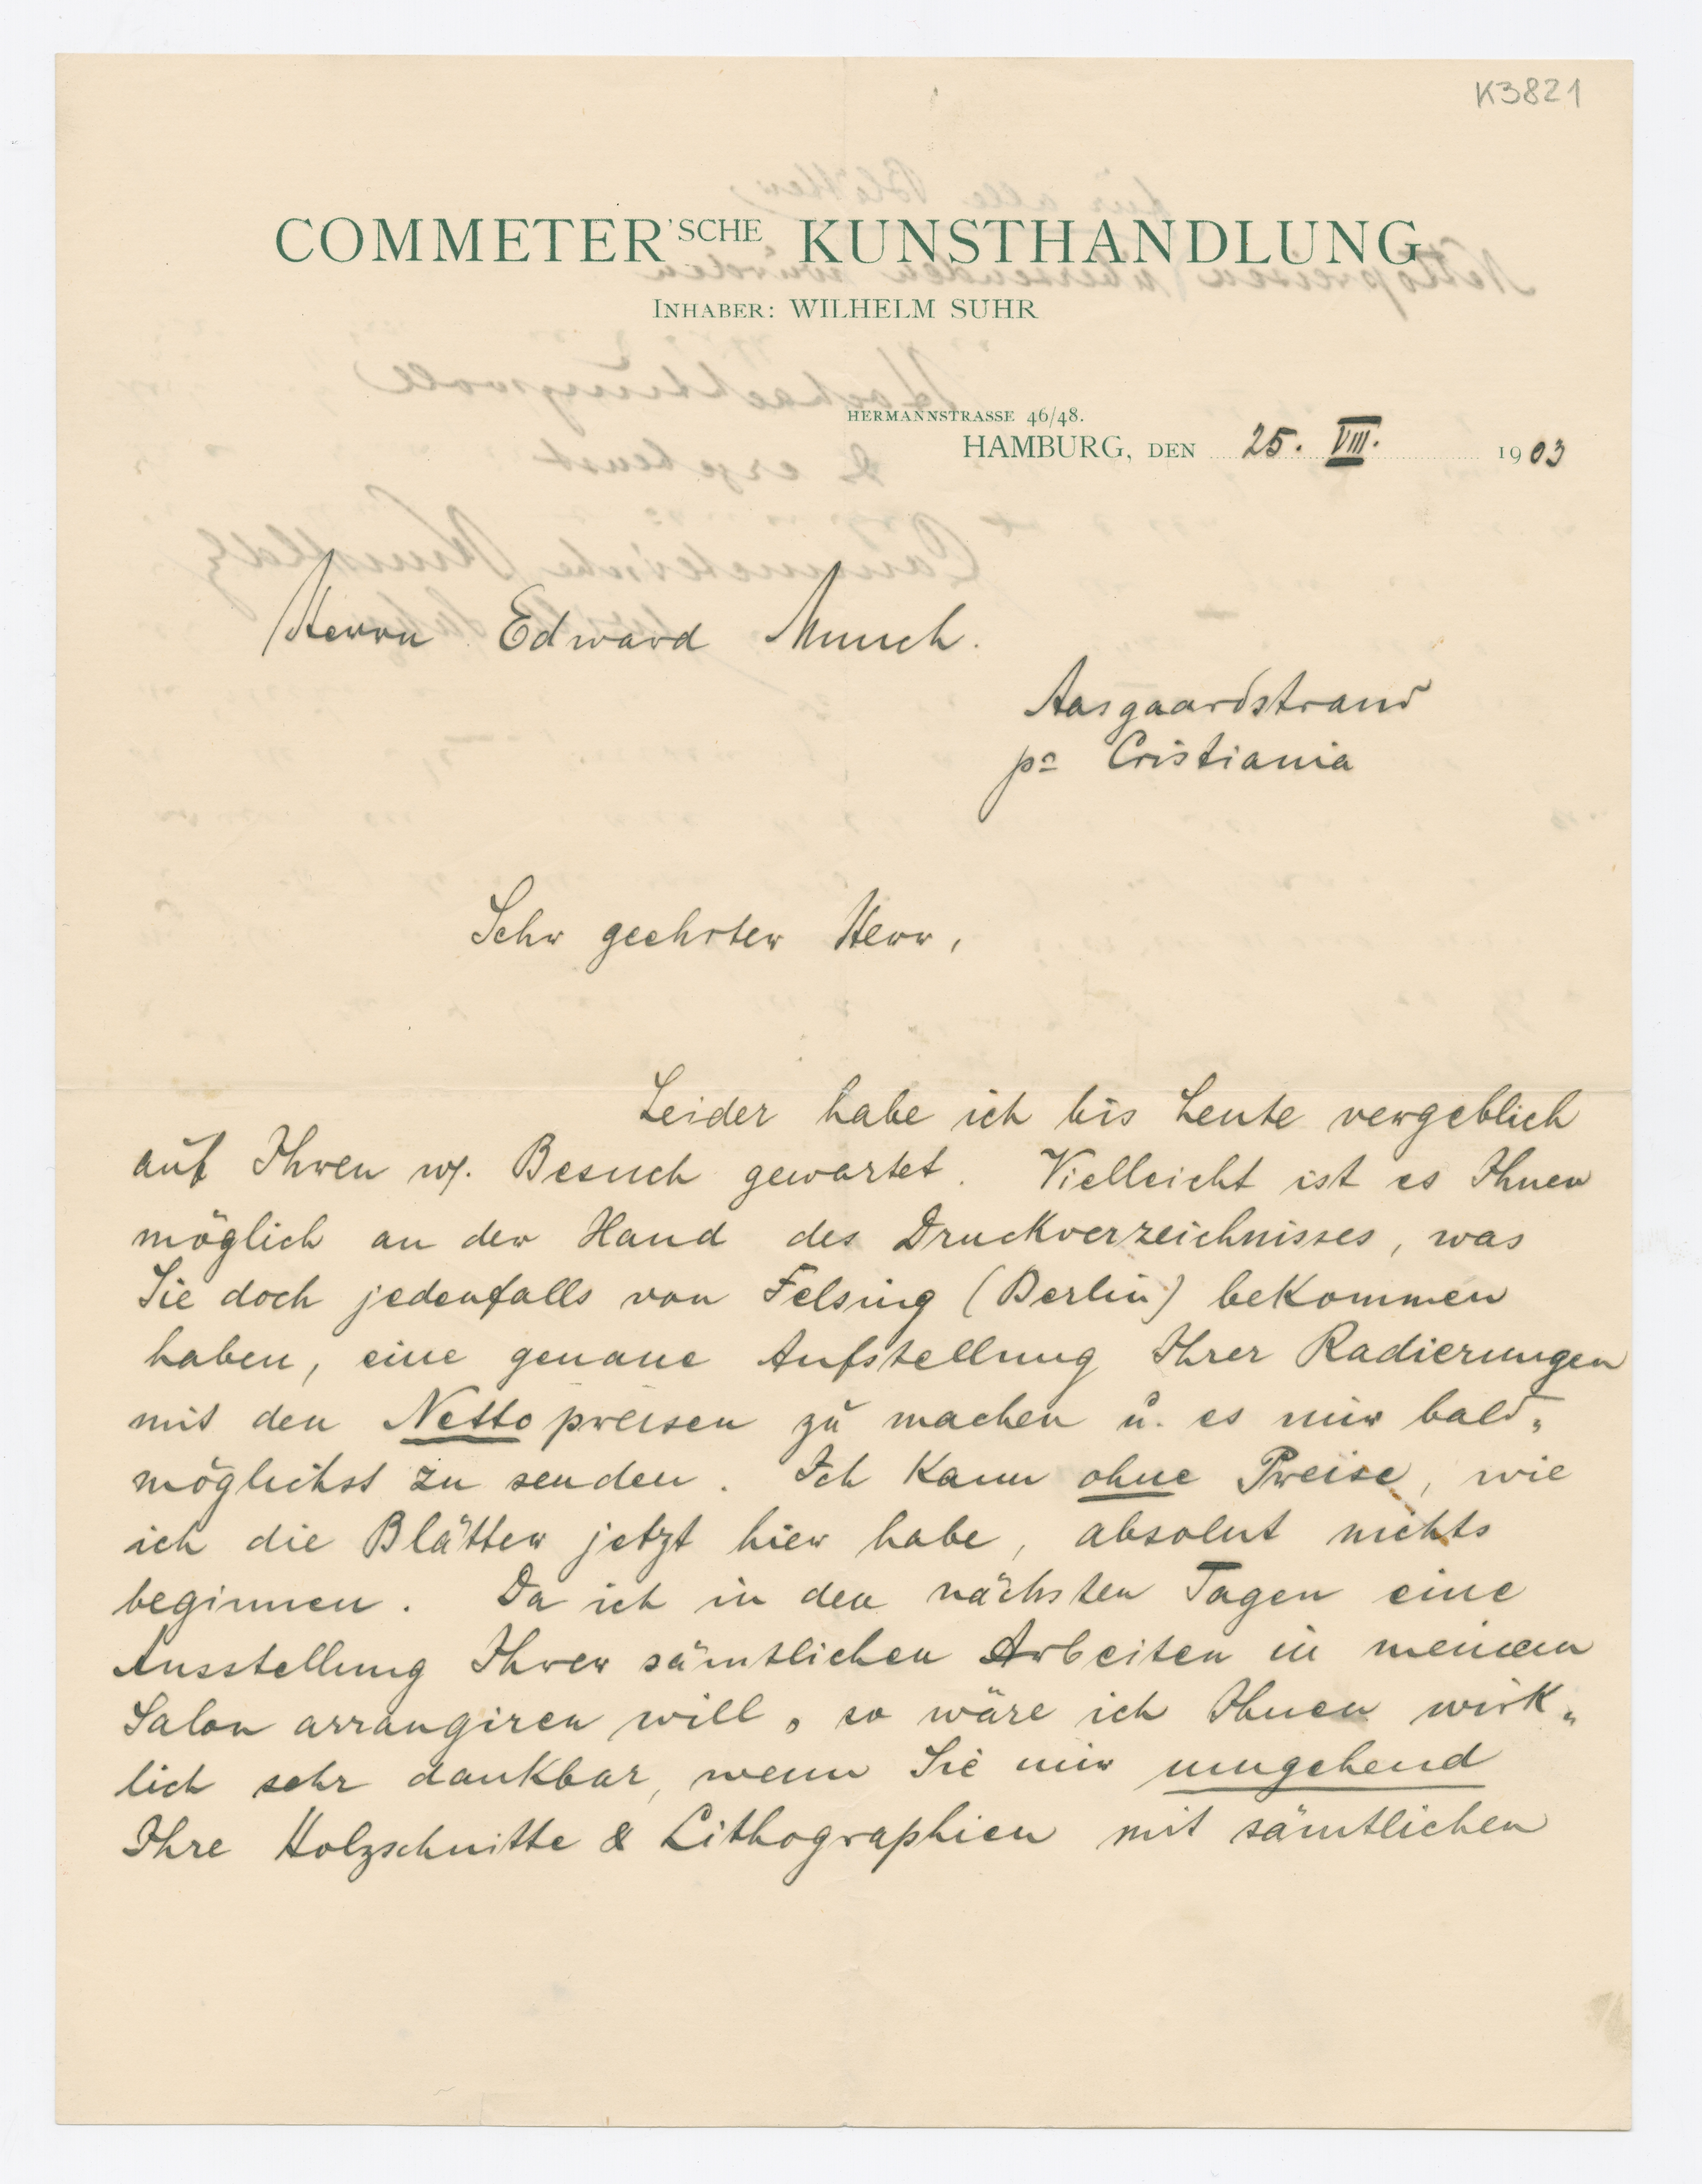 K3821
COMMETER'SCHE KUNSTHANDLUNG
INHABER: WILHELM SUHR
HERMANNSTRASSE 46/48.
HAMBURG, DEN 25. VIII. 1903
Herrn Edward Munch.
Aasgaardstrand
pa Cristiania
Sehr geehrter Herr,
Leider habe ich bis heute vergeblich
auf Ihren w. Besuch gewartet. Vielleicht ist es Ihnen
möglich an der Hand des Druckverzeichnisses, was
Sie doch jedenfalls von Felsing (Berlin) bekommen
haben, eine genaue Aufstellung Ihrer Radierungen
mit den Nettopreisen zu machen u. es mir bald„
möglichst zu senden. Ich kann ohne Preise, wie
ich die Blätter jetzt hier habe, absolut nichts
beginnen. Da ich in den nächsten Tagen eine
Ausstellung Ihrer sämtlichen Arbeiten in meinem
Salon arrangiren will, so wäre ich Ihnen wirk„
lich sehr dankbar, wenn Sie mir umgehend
Ihre Holzschnitte & Lithographien mit sämtlichen